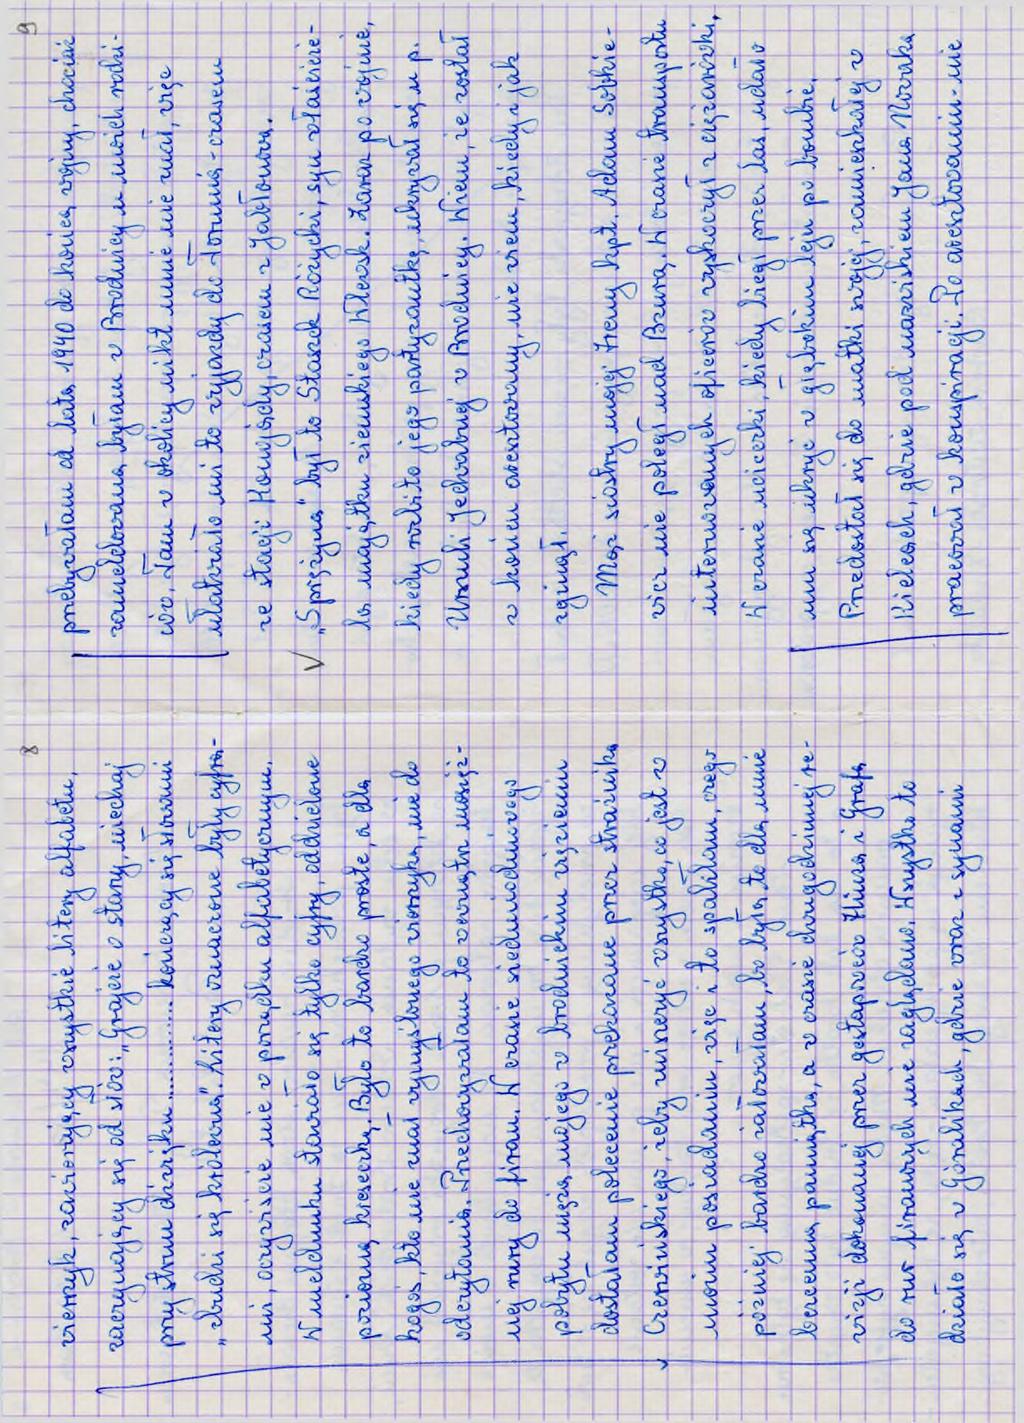 8
wierszyk, zawierający wszystkie litery alfabetu,
zaczynający się od słów: „Grajcie o stary, niechaj
przy strun dźwięku ............... kończący się słowami
„zbudzi się królewna". Litery oznaczone były cyfra-
mi, oczywiście nie w porządku alfabetycznym.
W meldunku stawiało się tylko cyfry, oddzielone
poziomą kreseczką. Było to bardzo proste, a dla
kogoś, kto nie znał wymyślonego wierszyka, nie do
odczytania. Przechowywałam to wewnątrz mosięż-
nej rury do firan. W czasie siedmiodniowego
pobytu męża mojego w brodnickim więzieniu
dostałam polecenie przekazane przez strażnika
Czerwińskiego, żeby zniszczyć wszystko, co jest w
moim posiadaniu, więc i to spaliłam, czego
później bardzo żałowałam, bo była to dla mnie
bezcenna pamiątka, a w czasie dwugodzinnej re-
wizji dokonanej przez gestapowców Hinza i Grafa
do rur firanowych nie zaglądano. Wszystko to
działo się w Góralikach, gdzie wraz z synami
9
przebywałam od lata 1940 do końca wojny, chociaż
zameldowana byłam w Brodnicy u moich rodzi-
ców. Tam w okolicy nikt mnie nie znał, więc
ułatwiało mi to wyjazdy do Torunia - czasem
ze stacji Konojady, czasem z Jabłonowa.
„Sprężyna" był to Staszek Różycki, syn właściciel-
la majątku ziemskiego Wlewsk. Zaraz po wojnie,
kiedy rozbito jego partyzantkę, ukrywał się u p.
Urszuli Jechalnej w Brodnicy. Wiem, że został
w końcu aresztowany, nie wiem, kiedy i jak
zginął.
Mąż siostry mojej Ireny kpt. Adam Sobkie-
wicz nie poległ nad Bzurą. W czasie transportu
internowanych oficerów wyskoczył z ciężarówki.
W czasie ucieczki, kiedy biegł przez las, udało
mu się ukryć w głębokim leju po bombie.
Przedostał się do matki swojej, zamieszkałej w
Kielcach, gdzie pod nazwiskiem Jana Nowaka
pracował w konspiracji. Po aresztowaniu - nie